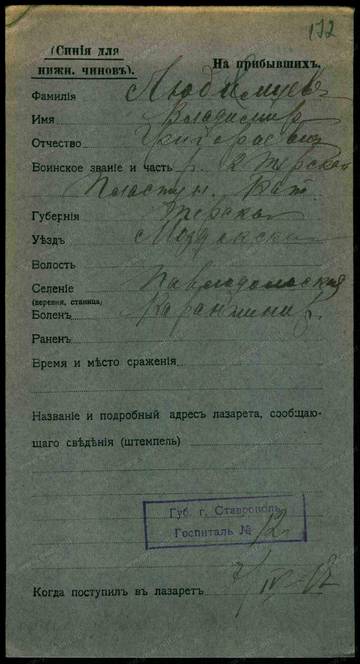 172
(Синія для нижн. чиновъ).
На прибывшихъ.
Фамилія
Имя Владимир
Отчество Григорьевич
Воинское званіе и часть р. 2 Терской
Пластун. бат.
Губернія Терская
Уѣздъ Моздокский
Волость
Селеніе Павлодольская
(деревня, станица)
Боленъ Карантини
Раненъ
Время и мѣсто сраженія
Названіе и подробный адресъ лазарета, сообщаю-
щаго свѣдѣнія (штемпель)
Губ. г. Ставрополь
Госпиталь № 12
Когда поступилъ въ лазаретъ 7/IV-17